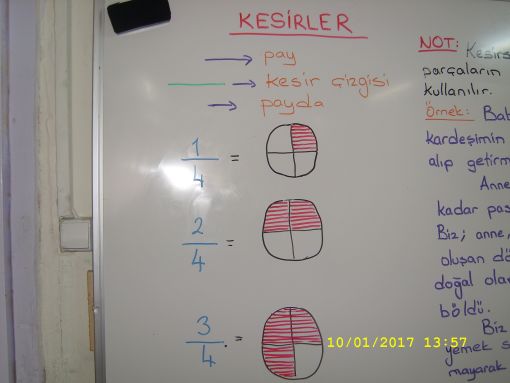 KESİRLER
pay
kesir çizgisi
payda
1/4 =
2/4 =
3/4 =
NOT: Kesirs
parçaların
kullanılır.
Örnek: Bab
kardeşimin
alıp getirm
Anne
kadar pas
Biz; anne,
oluşan dö
doğal olar
böldü.
Biz
yemek s
mayarak
10/01/2017 13:57